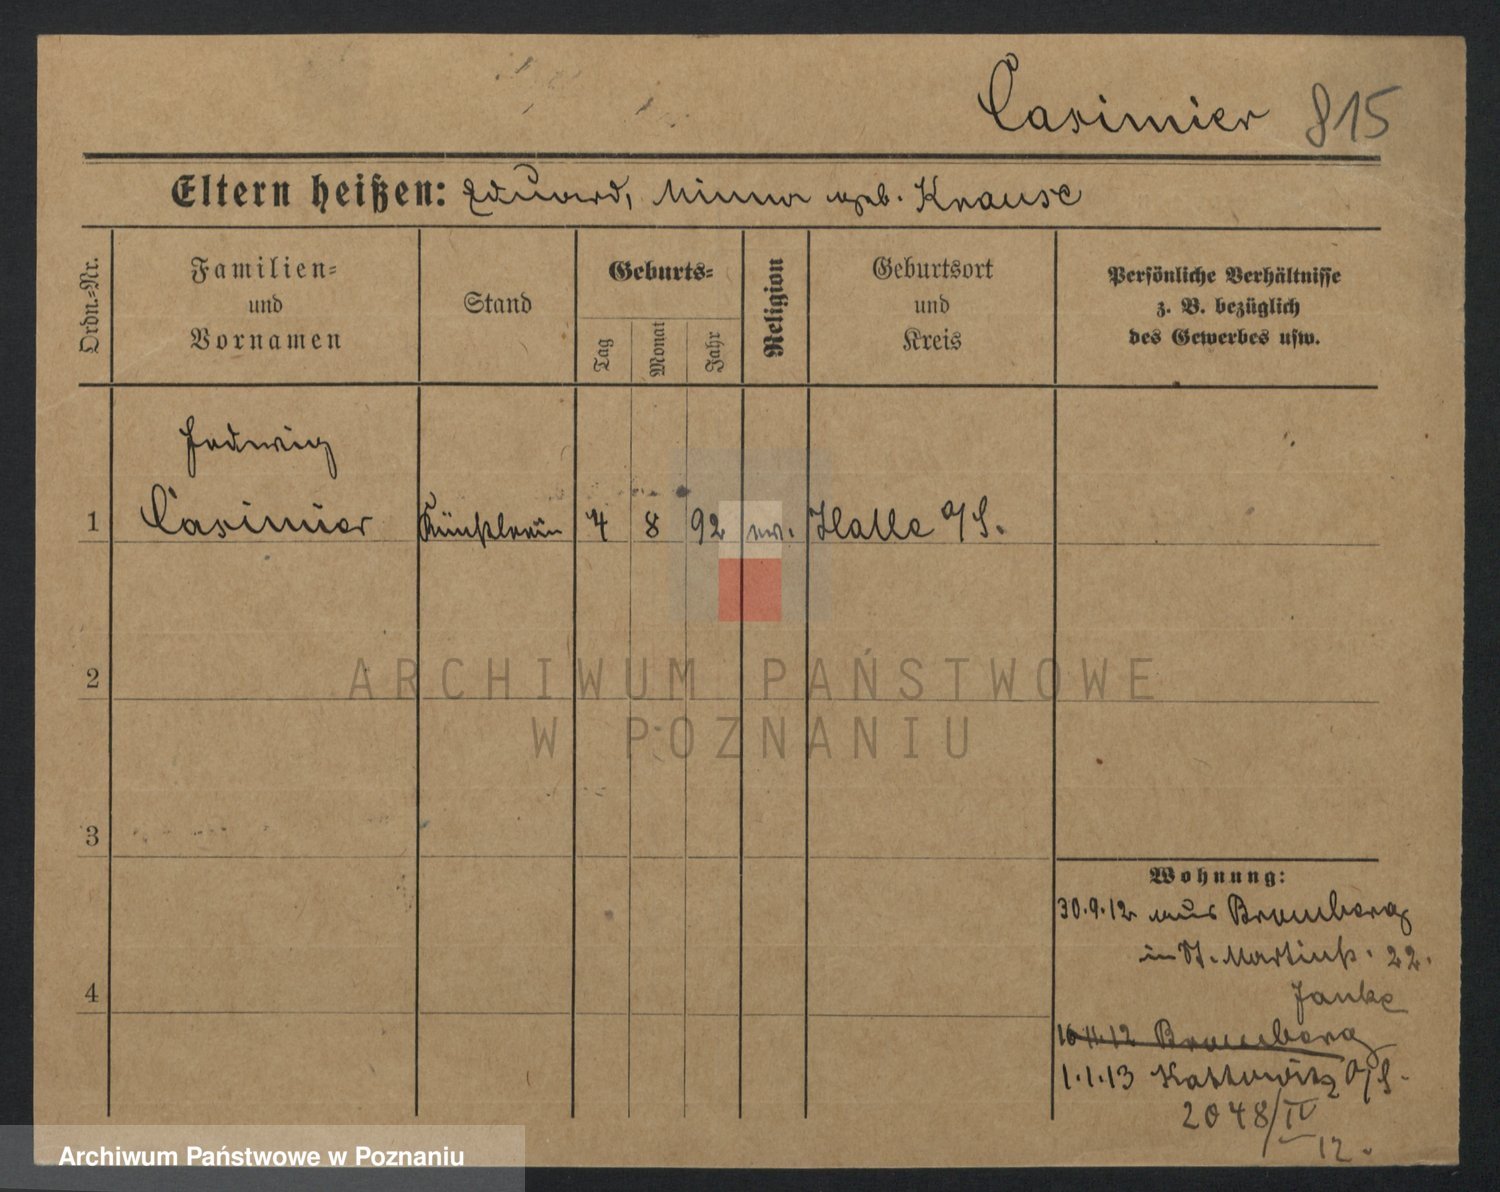 Casimier 815
Eltern heißen: Eduard, Minna geb. Krause
Ordn.=Nr.
Familien=
und
Vornamen
Stand
Geburts=
Tag
Monat
Jahr
Religion
Geburtsort
und
Kreis
Persönliche Verhältnisse
z. B. bezüglich
des Gewerbes usw.
Hedwig
1 Casimier Künstlerin 4 8 92 ev. Halle a/S.
2
ARCHIWUM PAŃSTWOWE
W POZNANIU
3
Wohnung:
30.9.12 aus Bromberg
in St. Martinstr. 22.
Janke
4
16.11.12 Bromberg
1.1.13 Kattowitz O/S.
2048/IV
12.
Archiwum Państwowe w Poznaniu